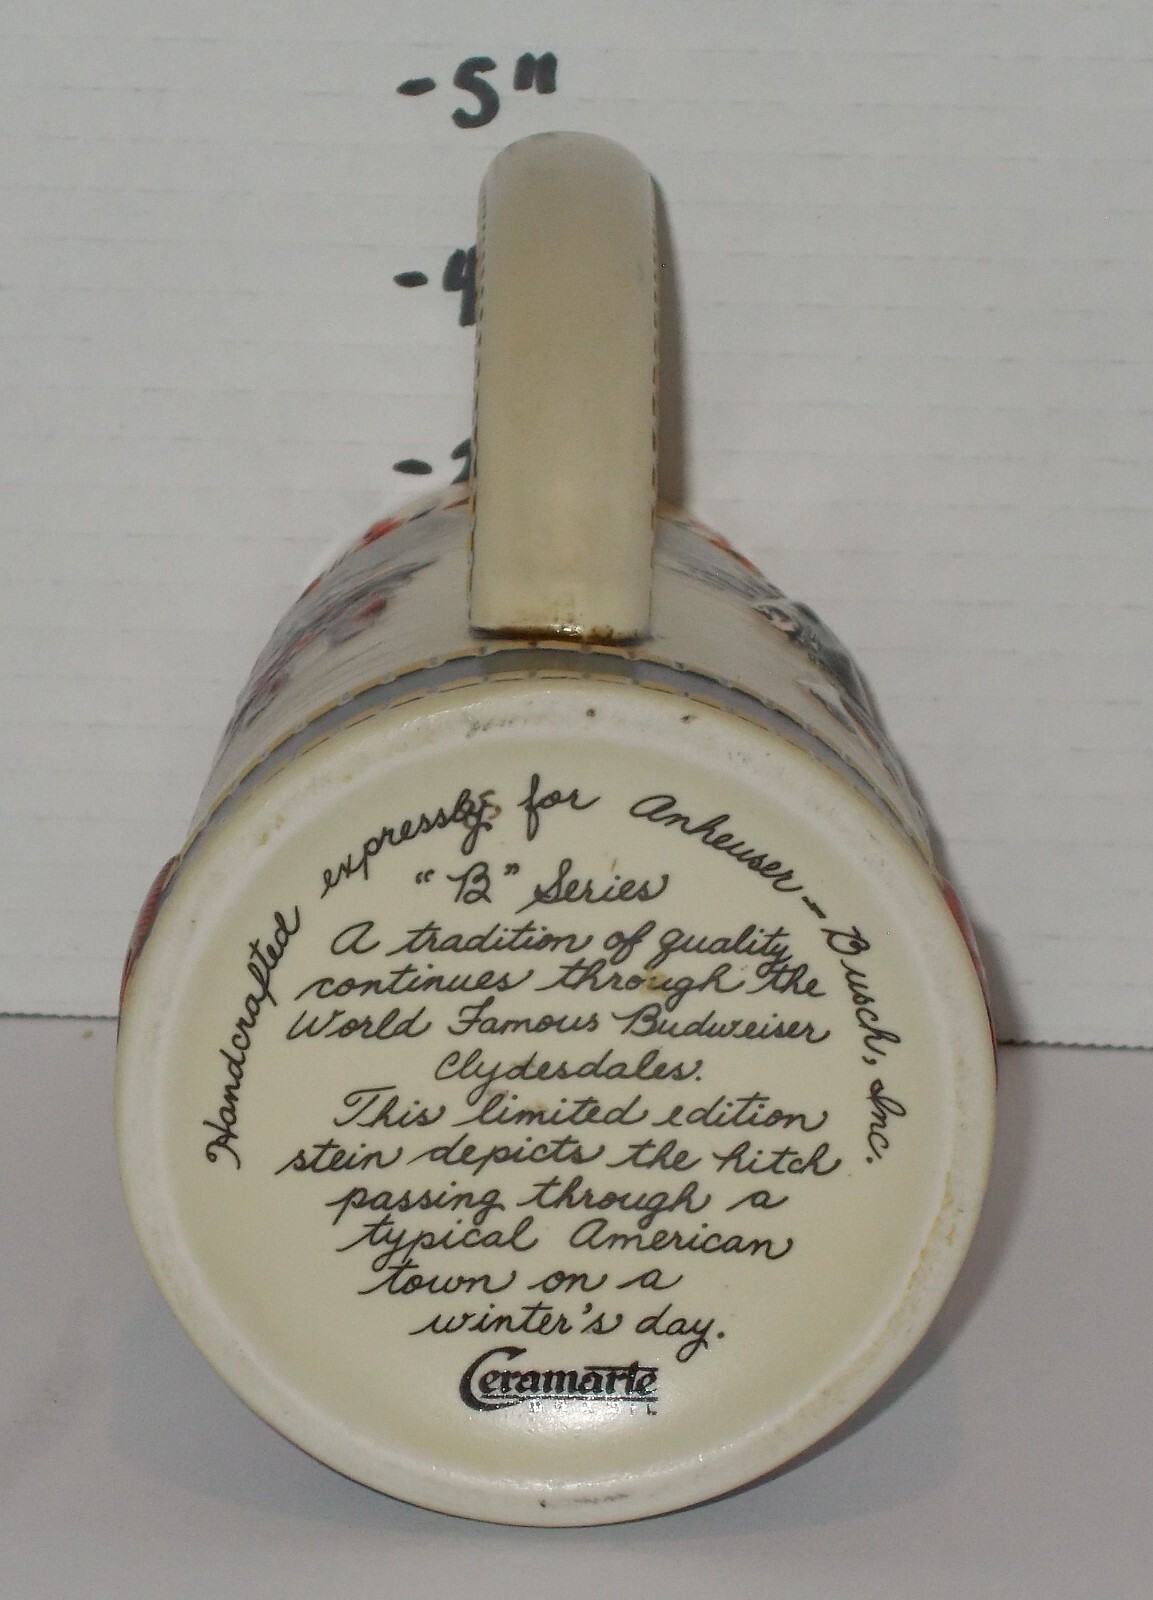 - 5"
- 4
-
Handcrafted expressly for Anheuser-Busch, Inc.
"B" Series
A tradition of quality
continues through the
World Famous Budweiser
Clydesdales.
This limited edition
stein depicts the hitch
passing through a
typical American
town on a
winter's day.
Ceramarte
BRAZIL